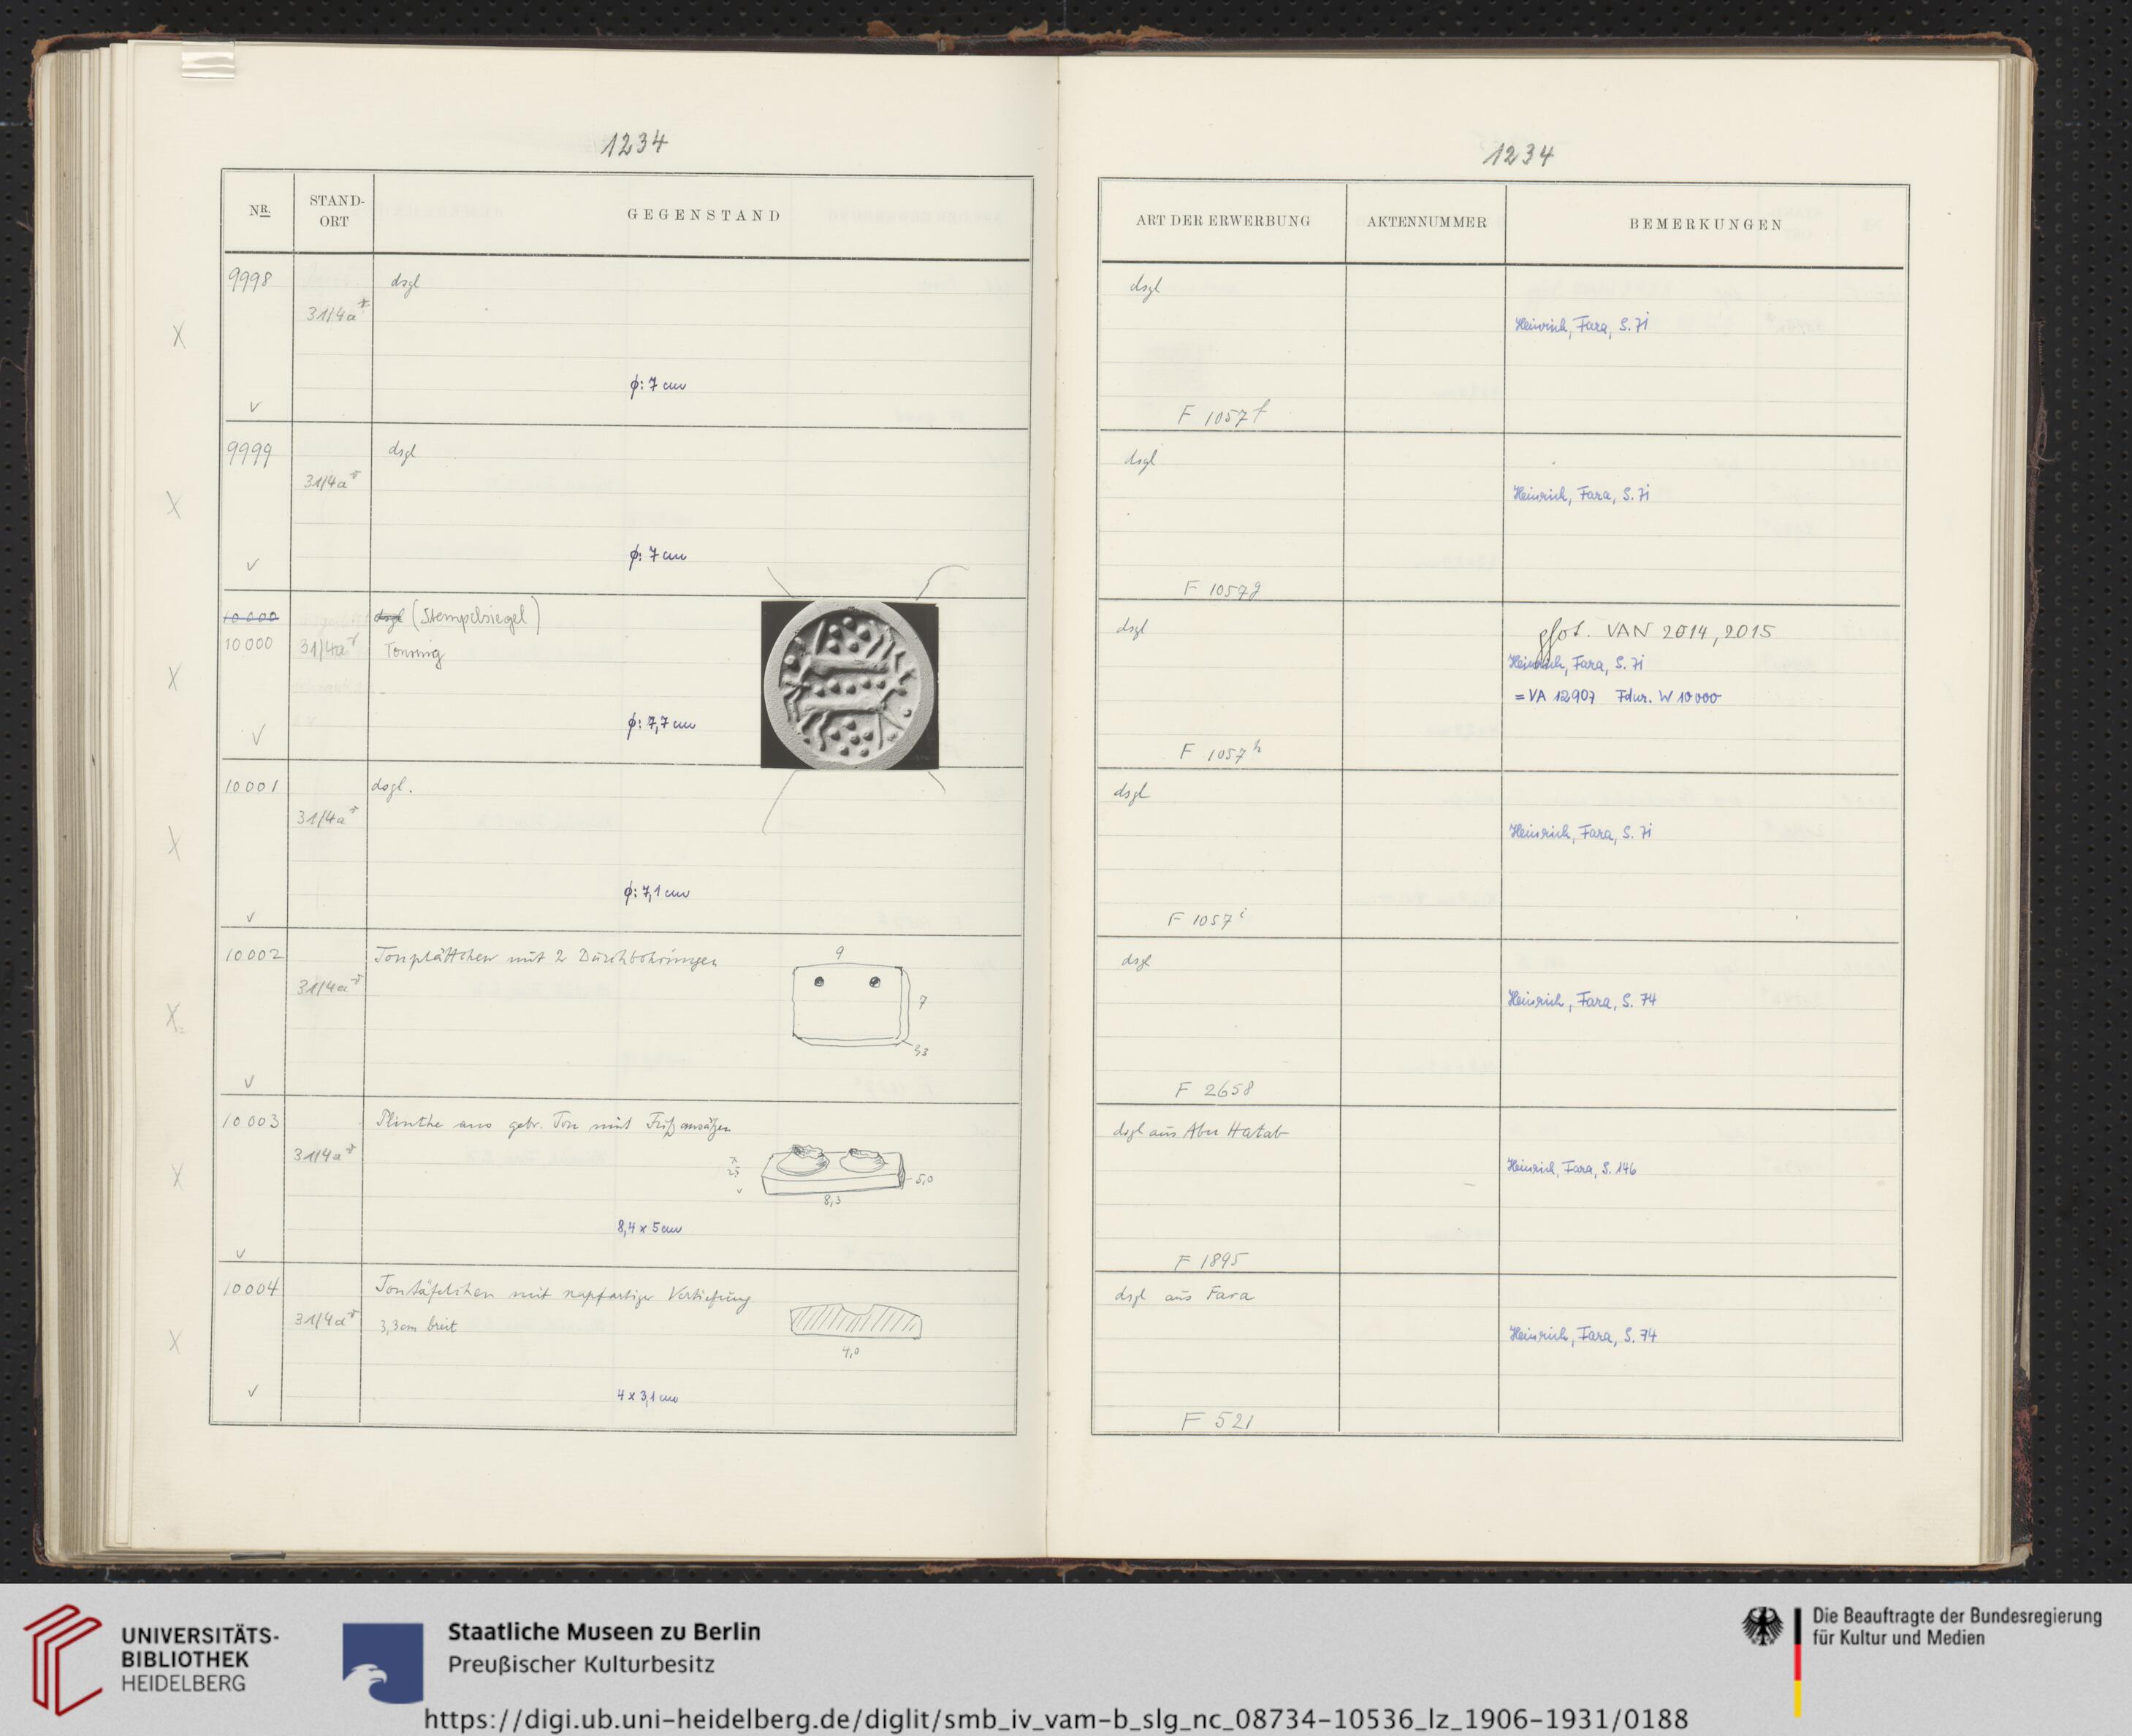 1234
NR.
STAND-
ORT
GEGENSTAND
9998
dsgl
31/4a
ϕ: 7 cm
9999
dsgl
31/4a
ϕ: 7 cm
10000
dsgl (Stempelsiegel)
10000
31/4a
Tonring
ϕ: 7,7 cm
10001
dsgl.
31/4a
ϕ: 7,1 cm
10002
Tonplättchen mit 2 Durchbohrungen
31/4a
9
7
10003
Plinthe aus gebr. Ton mit Fußansätzen
31/4a
5,0
8,3
8,4 x 5 cm
10004
Tontäfelchen mit napfartiger Vertiefung
31/4a
3,3cm breit
4,0
4 x 3,1 cm
1234
ART DER ERWERBUNG
AKTENNUMMER
BEMERKUNGEN
dsgl
Heinrich, Fara, S. 71
F 1057 f
dsgl
Heinrich, Fara, S. 71
F 1057 g
dsgl
phot. VAN 2014, 2015
Heinrich, Fara, S. 71
= VA 12907 Fdnr. W 10000
F 1057 h
dsgl
Heinrich, Fara, S. 71
F 1057 i
dsgl
Heinrich, Fara, S. 74
F 2658
dsgl aus Abu Hatab
Heinrich, Fara, S. 146
F 1895
dsgl aus Fara
Heinrich, Fara, S. 74
F 521
UNIVERSITÄTS-
BIBLIOTHEK
HEIDELBERG
Staatliche Museen zu Berlin
Preußischer Kulturbesitz
Die Beauftragte der Bundesregierung
für Kultur und Medien
https://digi.ub.uni-heidelberg.de/diglit/smb_iv_vam-b_slg_nc_08734-10536_lz_1906-1931/0188